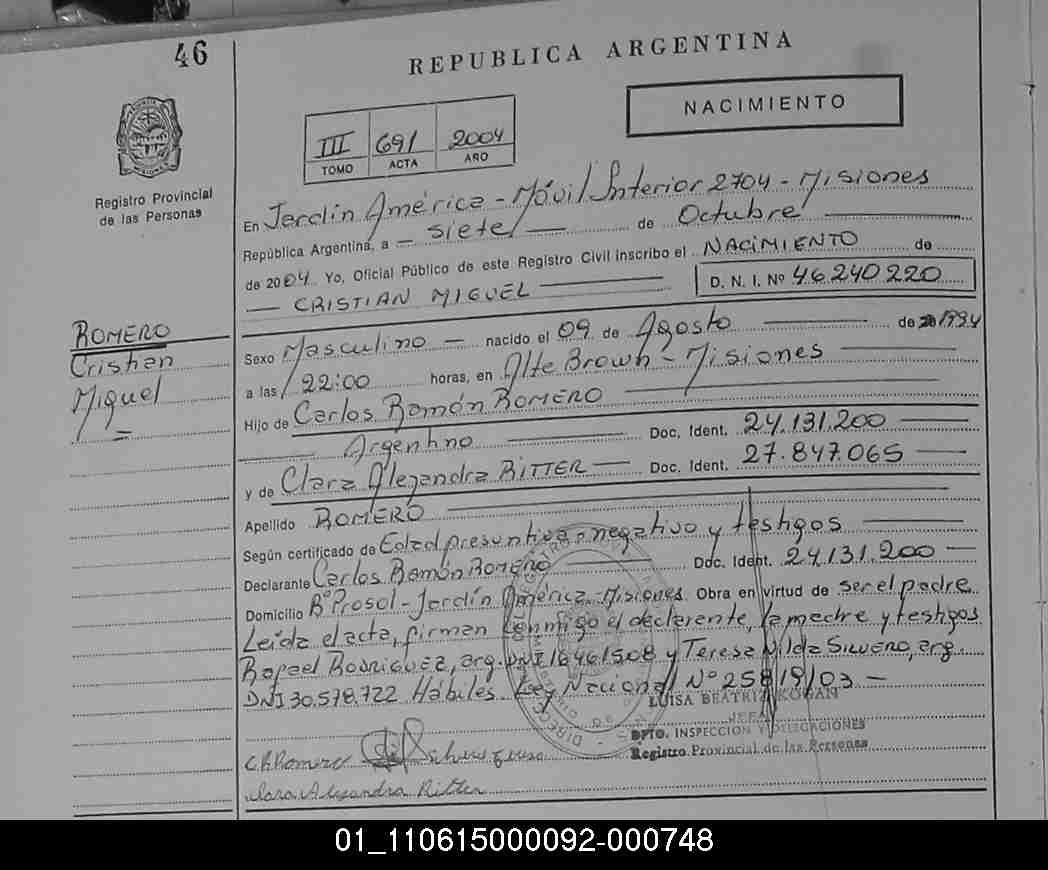 46
REPUBLICA ARGENTINA
NACIMIENTO
III 691 2004
TOMO ACTA AÑO
Registro Provincial
de las Personas
En Jardín América - Móvil Interior 2704 - Misiones
República Argentina, a - siete - de Octubre
de 2004 Yo, Oficial Público de este Registro Civil inscribo el NACIMIENTO de
- CRISTIAN MIGUEL D. N. I. Nº 46240220
ROMERO
Cristian
Miguel
Sexo Masculino - nacido el 09 de Agosto de 1994
a las 22:00 horas, en Alte Brown - Misiones
Hijo de Carlos Ramón ROMERO
Argentino Doc. Ident. 24.131.200
y de Clara Alejandra RITTER - Doc. Ident. 27.847.065 -
Apellido ROMERO
Según certificado de Edad presuntiva, negativo y testigos
Declarante Carlos Ramón ROMERO Doc. Ident. 24.131.200 -
Domicilio Bº Prosol - Jardín América - Misiones Obra en virtud de ser el padre
Leída el acta, firman conmigo el declarante, la madre y testigos
Rafael RODRIGUEZ, arg. DNI 16461508 y Teresa Nilda SILVERO, arg.
DNI 30.578.722 Hábiles Ley Nacional Nº 25819/03 -
LUISA BEATRIZ KOGAN
JEFA
DPTO. INSPECCION Y DELEGACIONES
Registro Provincial de las Personas
C R Romero
Clara Alejandra Ritter
01_110615000092-000748